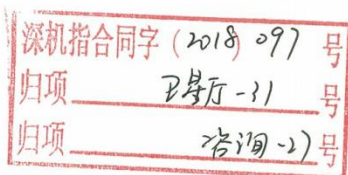 深机指合同字（2018）097号
归项 卫星厅-31 号
归项 咨询-27 号